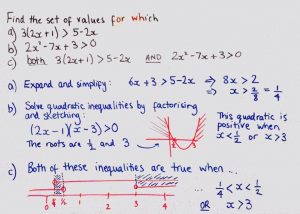 Find the set of values for which
a) 3(2x+1) > 5-2x
b) 2x²-7x+3>0
c) both 3(2x+1) > 5-2x AND 2x²-7x+3>0
a) Expand and simplify: 6x+3 > 5-2x ⇒ 8x > 2
⇒ x > 2/8 = 1/4
b) Solve quadratic inequalities by factorising
and sketching:
(2x-1)(x-3) > 0
The roots are ½ and 3
½ 3
This quadratic is
positive when
x < ½ or x > 3
c) Both of these inequalities are true when ...
0 ¼ ½ 1 2 3 4 5
... ¼ < x < ½
OR x > 3